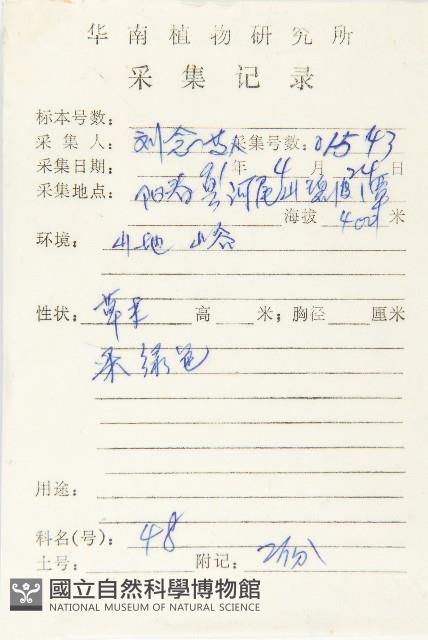 华南植物研究所
采集记录
标本号数:
采集人: 刘念 采集号数: 01543
采集日期: 年 4 月 24 日
采集地点: 阳春 河尾山
海拔 400 米
环境: 山地 山谷
性状: 草本 高 米; 胸径 厘米
果绿色
用途:
科名(号): 48
土号: 附记: 2份
國立自然科學博物館
NATIONAL MUSEUM OF NATURAL SCIENCE